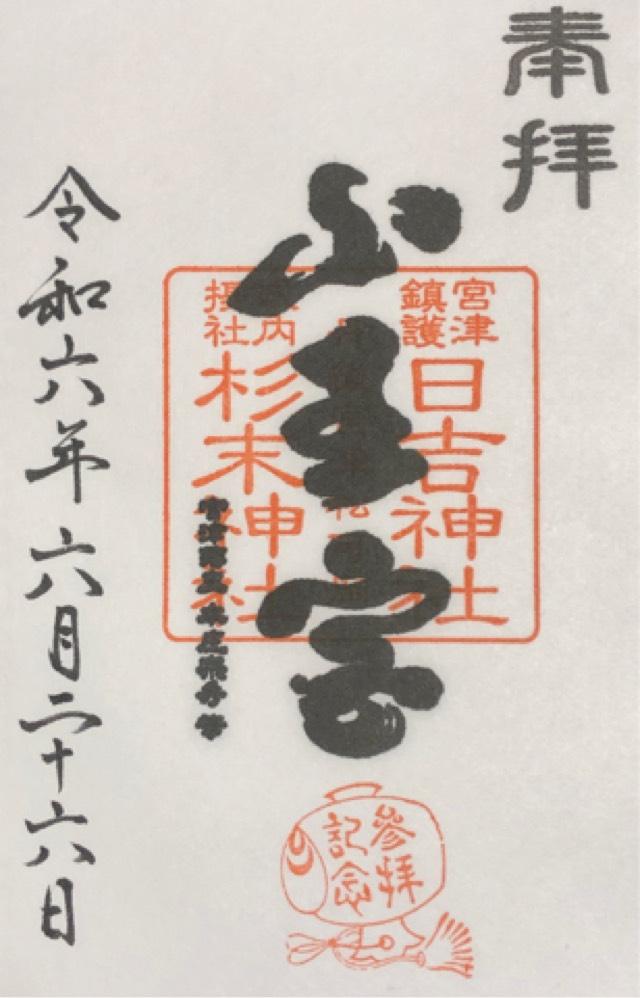 奉拝
山王宮
宮津
鎮護
日吉神社
境内
摂社
杉末神社
令和六年六月二十六日
参拝
記念